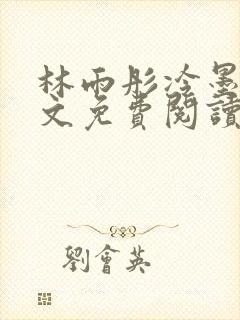 林雨彤冷墨
文免費閱讀
劉會英